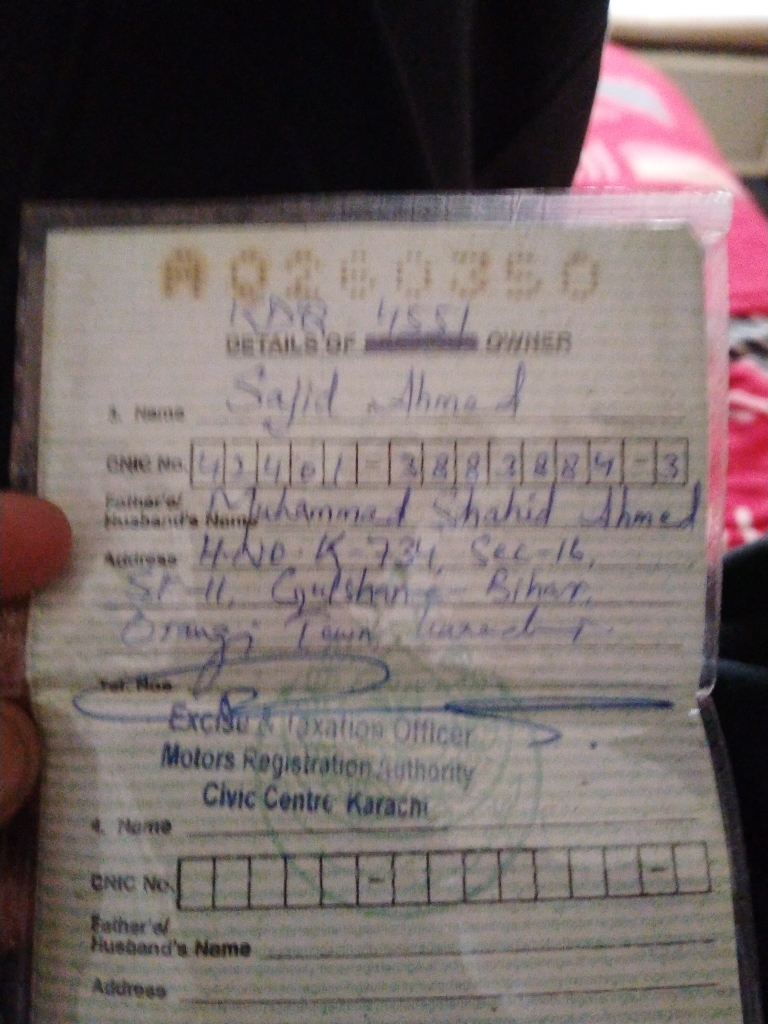 A0260350
KAR 4551
DETAILS OF OWNER
3. Name Sajid Ahmed
CNIC No. 42401-3883884-3
Father's/
Husband's Name Muhammad Shahid Ahmed
Address H.NO. K-734, Sec-16,
St-11, Gulshan-e-Bihar,
Orangi Town, Karachi.
Tel. Nos
Excise & Taxation Officer
Motors Registration Authority
Civic Centre Karachi
4. Name
CNIC No. - -
Father's/
Husband's Name
Address